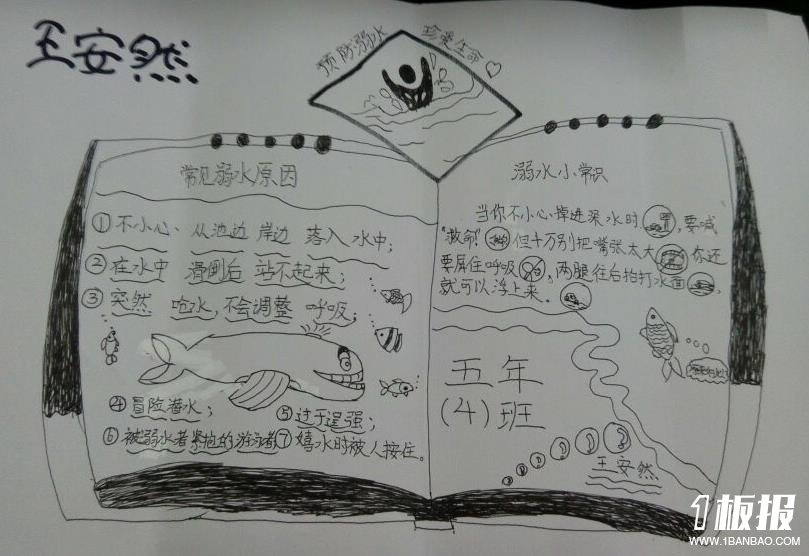 王安然
预防溺水 珍爱生命
常见溺水原因
①不小心、从池边 岸边 落入 水中；
②在水中 滑倒后 站不起来；
③突然 呛水，不会调整 呼吸；
④冒险潜水；
⑤过于逞强；
⑥被溺水者紧抱的游泳者
⑦嬉水时被人按住。
溺水小常识
当你不小心掉进深水时，要喊
"救命"但千万别把嘴张太大，你还
要屏住呼吸，两腿往后拍打水面，
就可以浮上来。
五年
(4)班
王安然
1板报
WWW.1BANBAO.COM